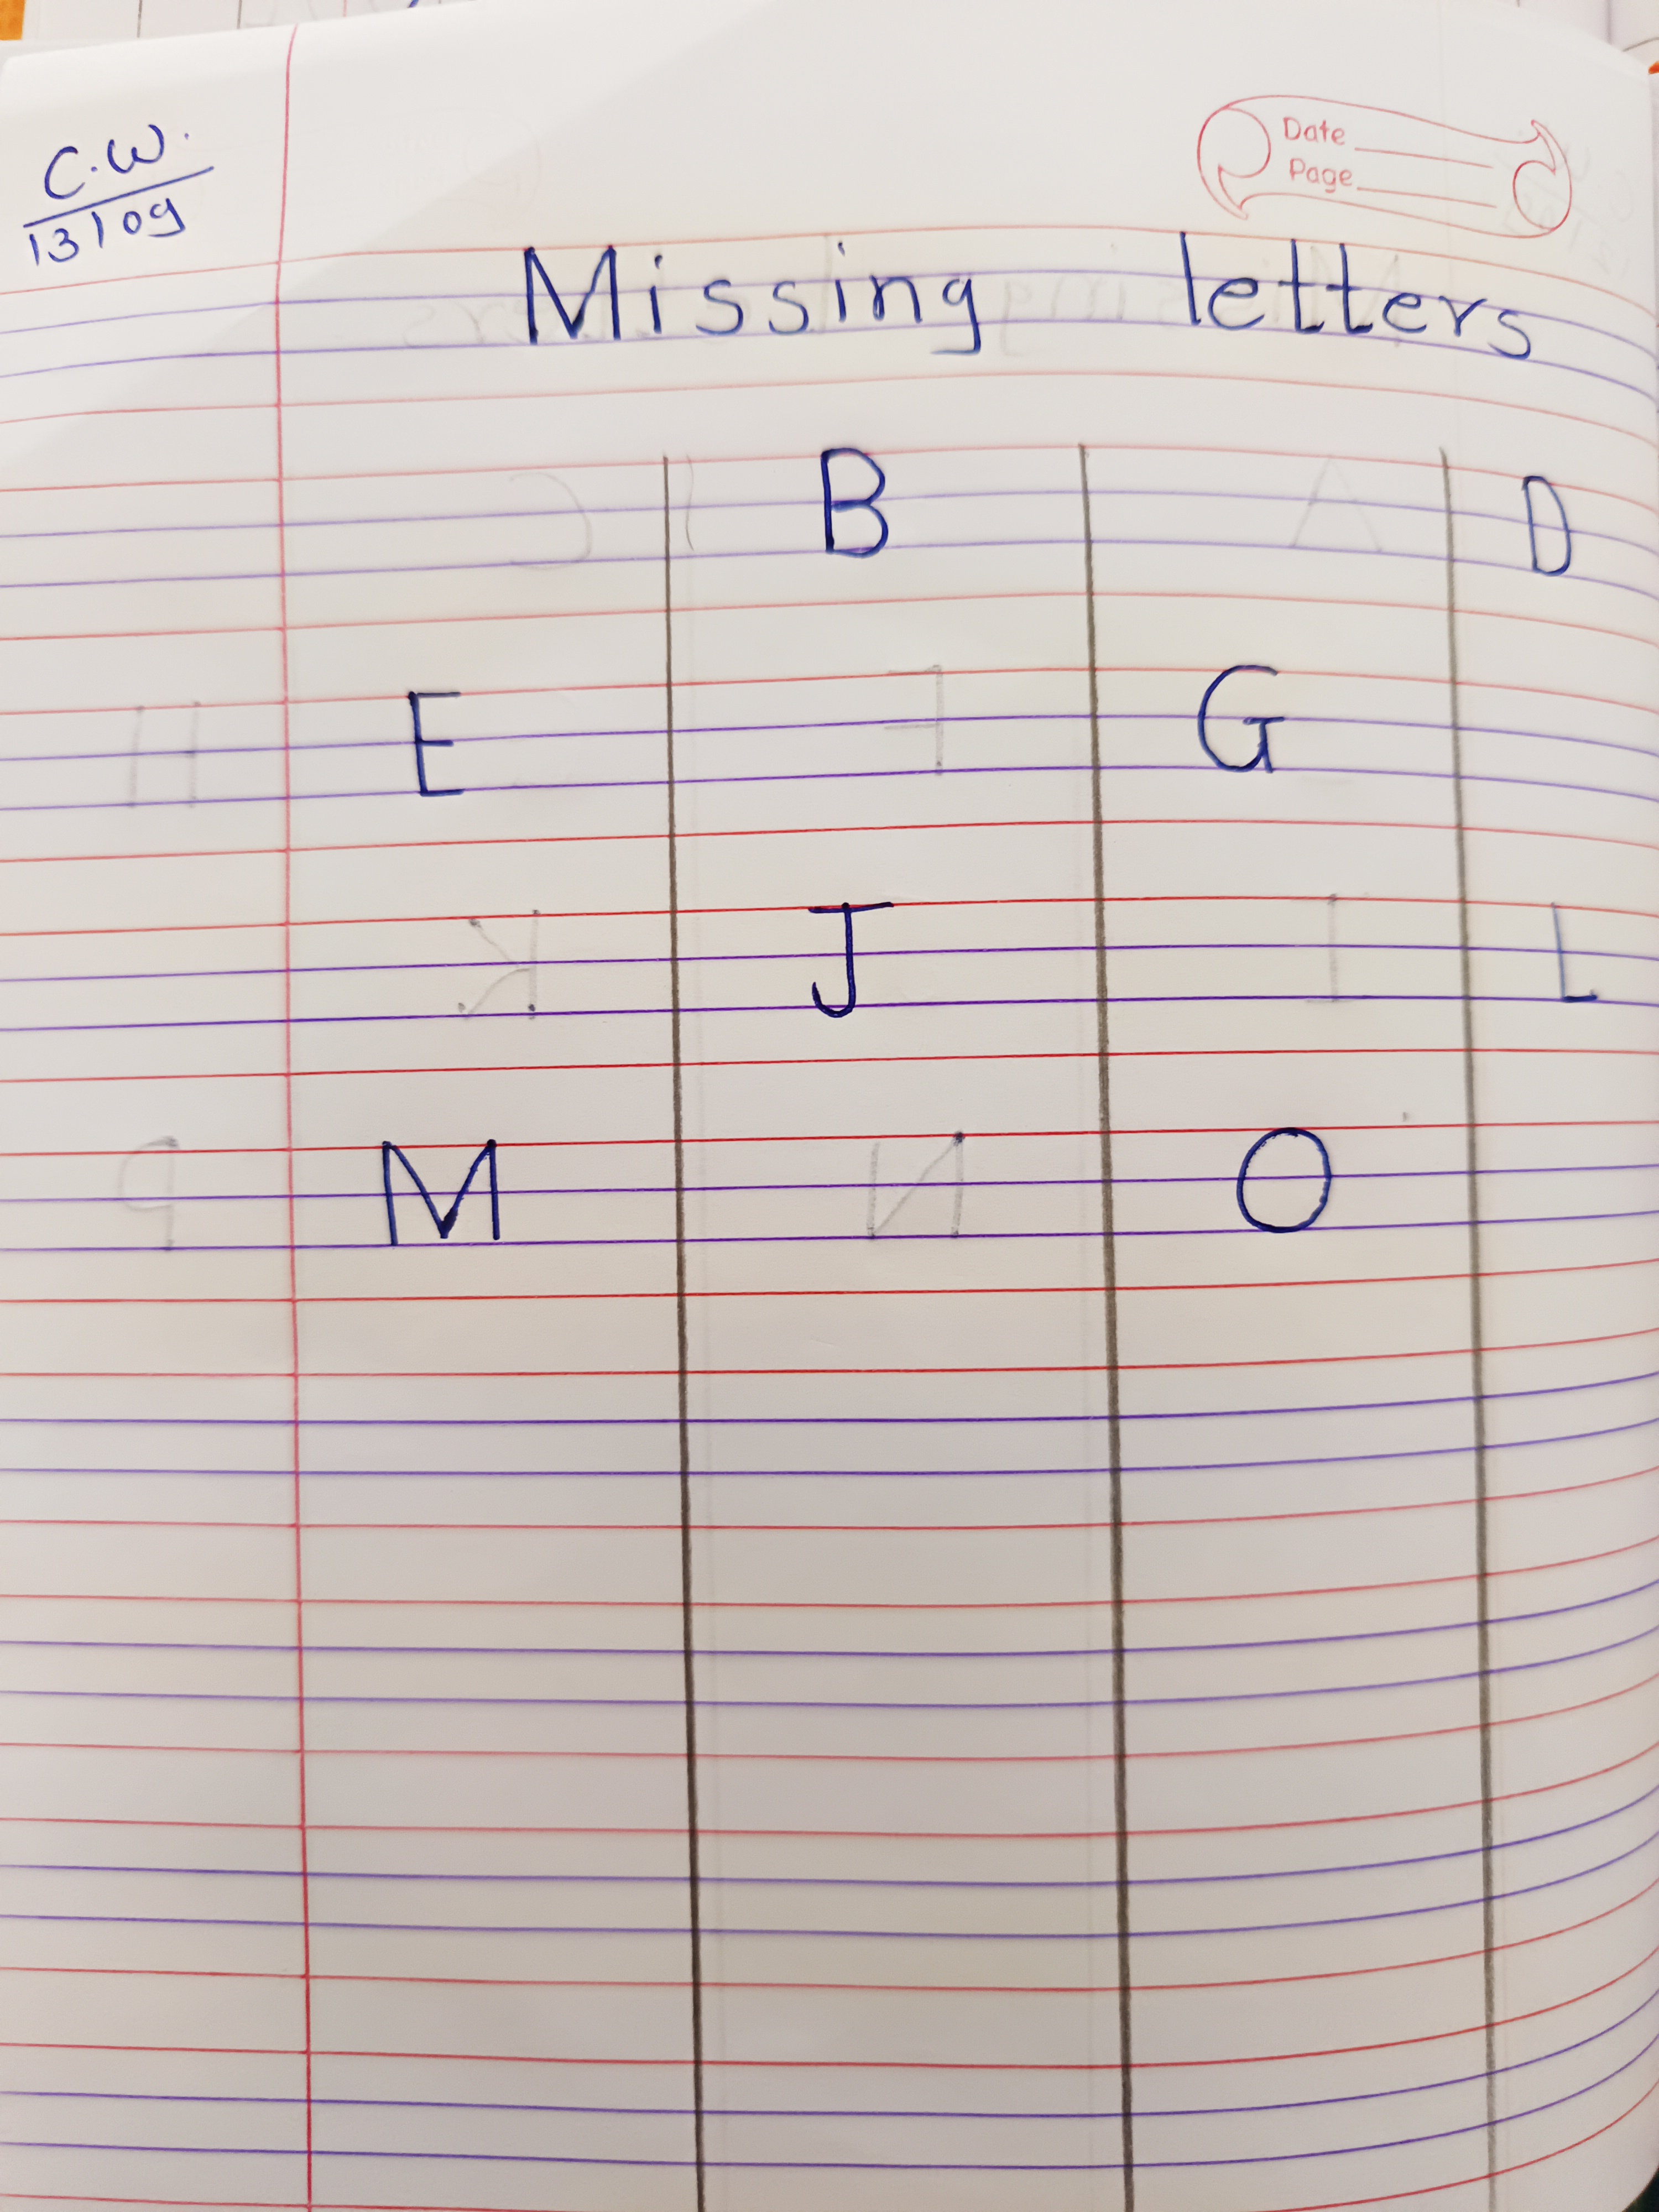 Date
Page
C.W.
13/09
Missing letters
B D
E G
J L
M O